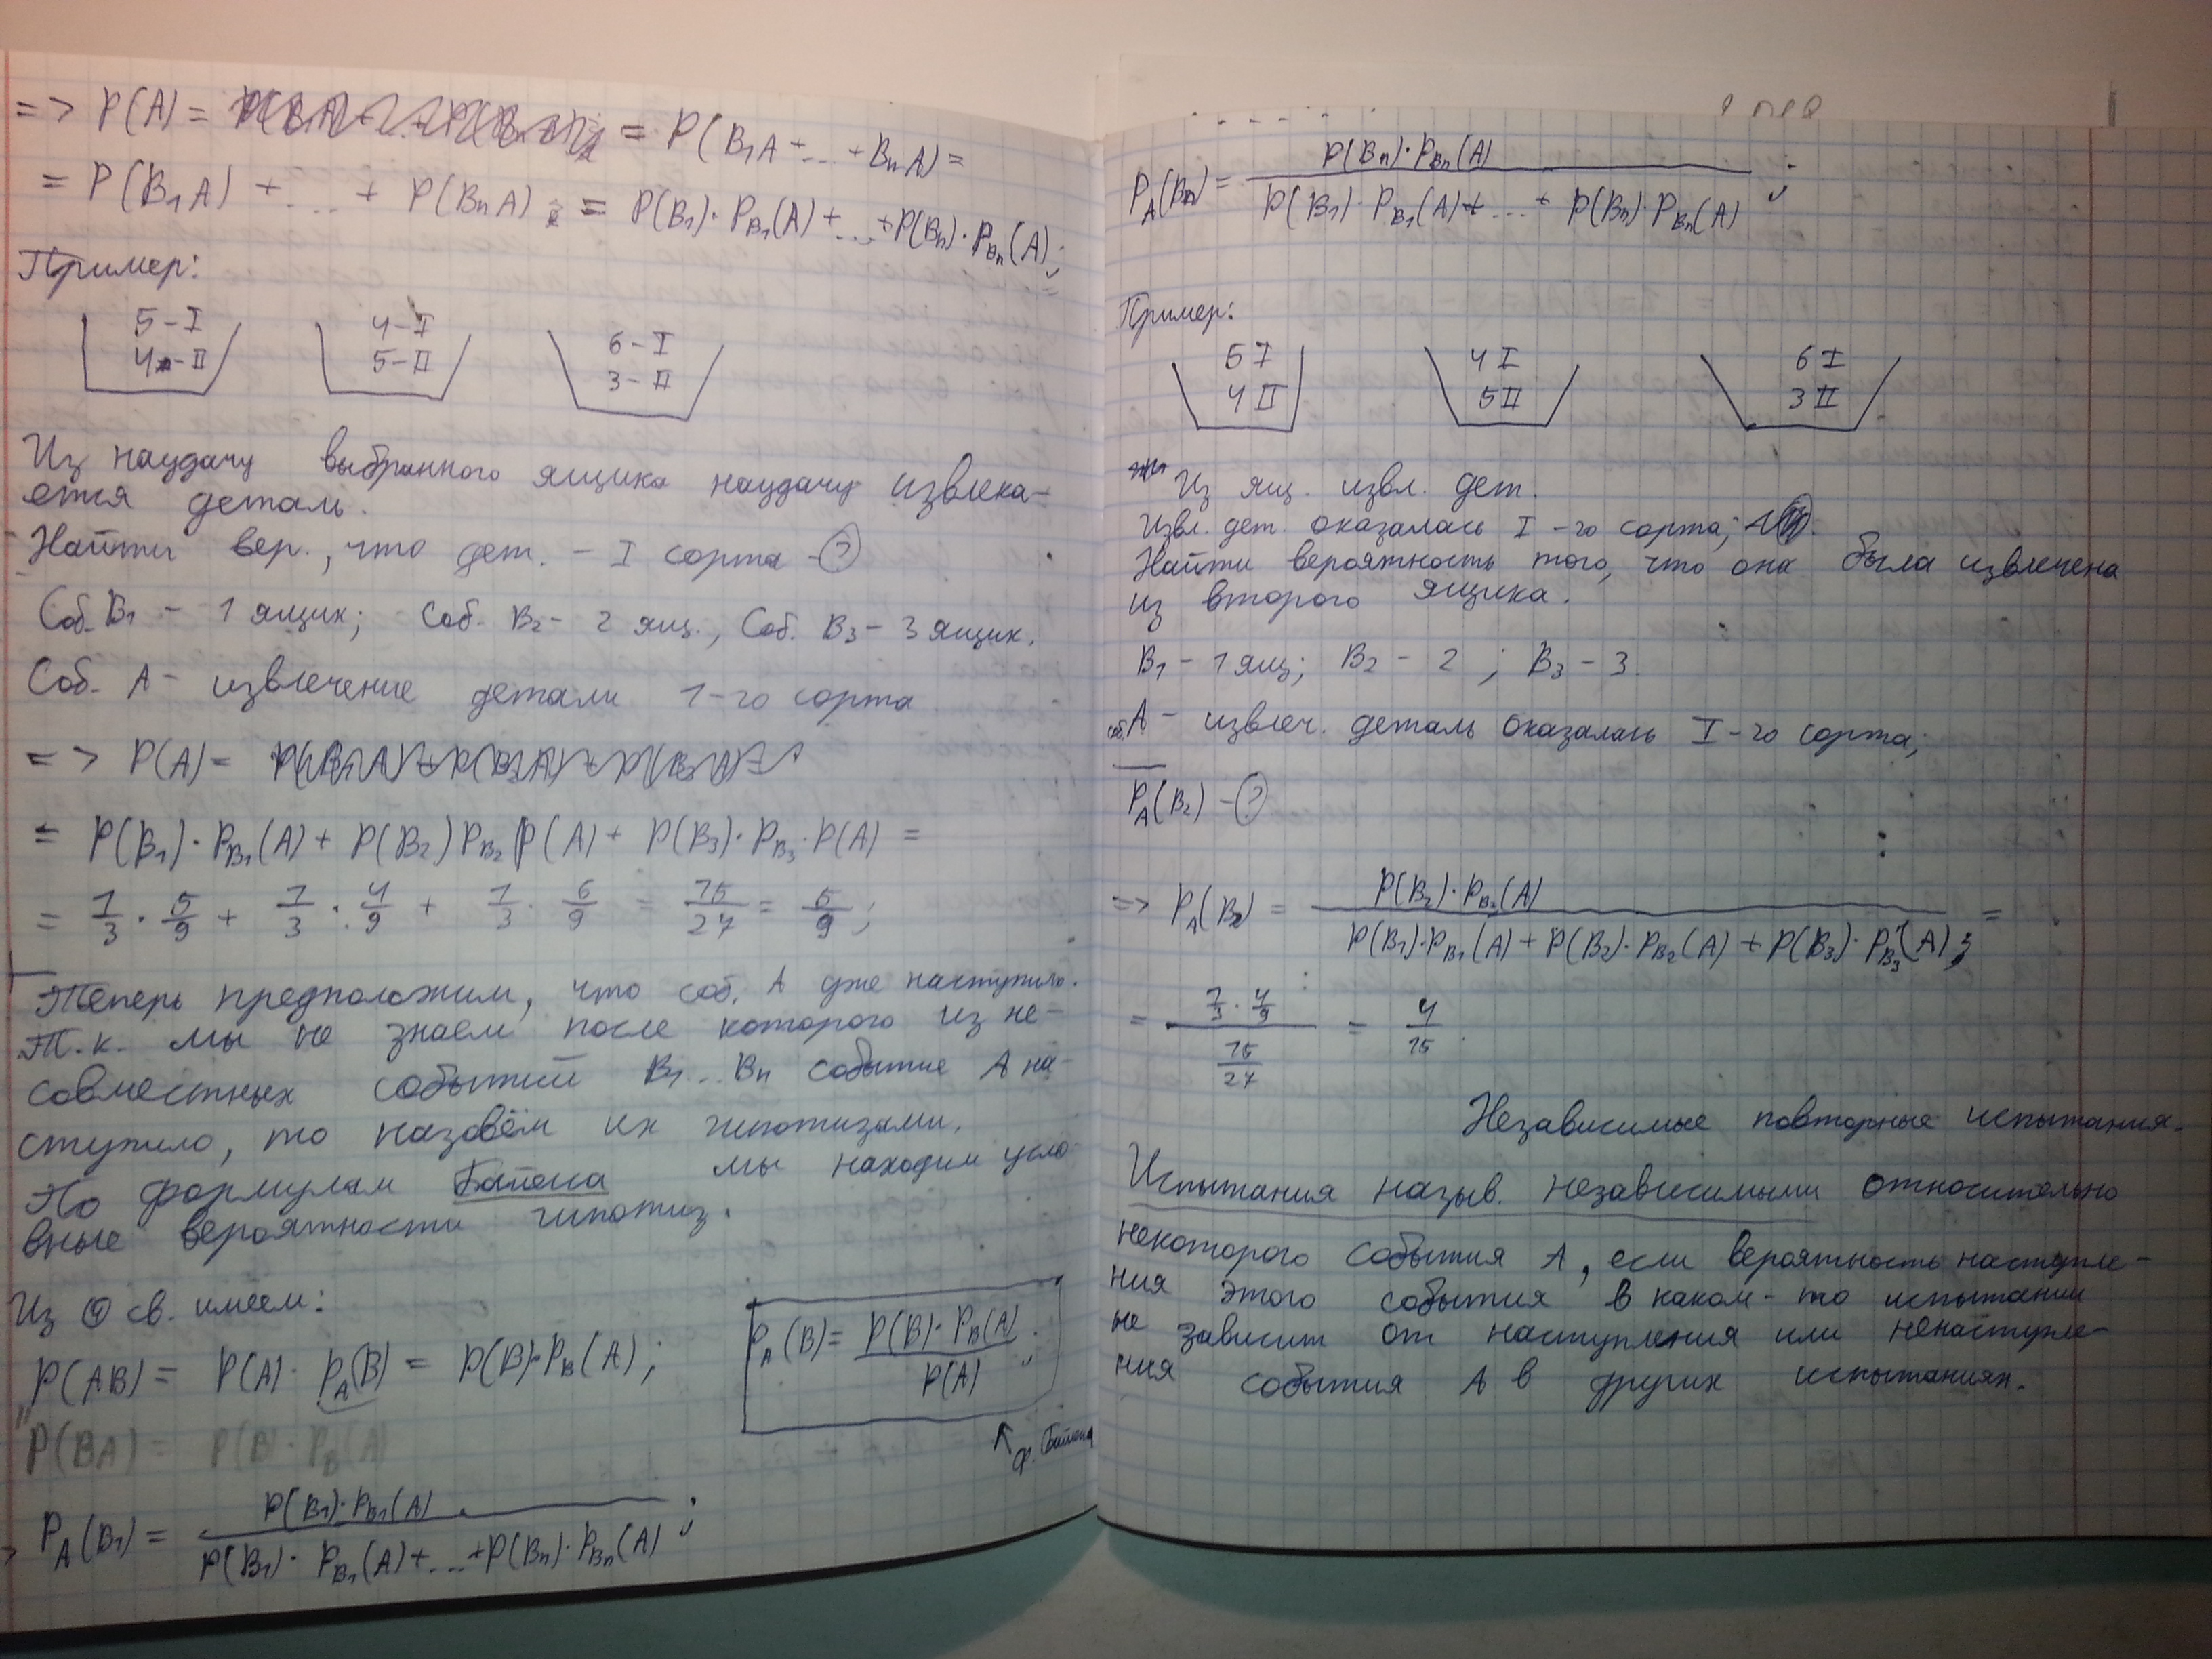 => P(A) = = P(B₁A + ... + BₙA) =
= P(B₁A) + ... + P(BₙA) = P(B₁)·P_B₁(A) + ... + P(Bₙ)·P_Bₙ(A);
Пример:
5-I 4-I 6-I
4-II 5-II 3-II
Из наудачу выбранного ящика наудачу извлека-
ется деталь.
Найти вер., что дет. - I сорта - ?
Соб. B₁ - 1 ящик; Соб. B₂ - 2 ящ., Соб. B₃ - 3 ящик.
Соб. A - извлечение детали 1-го сорта
=> P(A) =
= P(B₁)·P_B₁(A) + P(B₂) P_B₂ P(A) + P(B₃)·P_B₃·P(A) =
= 1/3 · 5/9 + 1/3 · 4/9 + 1/3 · 6/9 = 15/27 = 5/9;
Теперь предположим, что соб. A уже наступило.
Т.к. мы не знаем после которого из не-
совместных событий B₁...Bₙ событие A на-
ступило, то назовём их гипотизами.
По формулам Байеса мы находим усло-
вные вероятности гипотиз.
Из ① св. имеем:
P(AB) = P(A)·P_A(B) = P(B)·P_B(A);
P_A(B) = P(B)·P_B(A) / P(A);
ф. Байеса
P(BA) = P(B)·P_B(A)
P_A(B₁) = P(B₁)·P_B₁(A) / P(B₁)·P_B₁(A) + ... + P(Bₙ)·P_Bₙ(A);
P_A(Bₙ) = P(Bₙ)·P_Bₙ(A) / P(B₁)·P_B₁(A) + ... + P(Bₙ)·P_Bₙ(A);
Пример:
5 I 4 I 6 I
4 II 5 II 3 II
Из ящ. извл. дет.
Извл. дет. оказалась I-го сорта;
Найти вероятность того, что она была извлечена
из второго ящика.
B₁ - 1 ящ; B₂ - 2; B₃ - 3.
соб. A - извлеч. деталь оказалась I-го сорта;
P_A(B₂) - ?
=> P_A(B₂) = P(B₂)·P_B₂(A) / P(B₁)·P_B₁(A) + P(B₂)·P_B₂(A) + P(B₃)·P_B₃(A) =
= 1/3 · 4/9 / 15/27 = 4/15
Независимые повторные испытания.
Испытания назыв. независимыми относительно
некоторого события A, если вероятность наступле-
ния этого события в каком-то испытании
не зависит от наступления или ненаступле-
ния события A в других испытаниях.